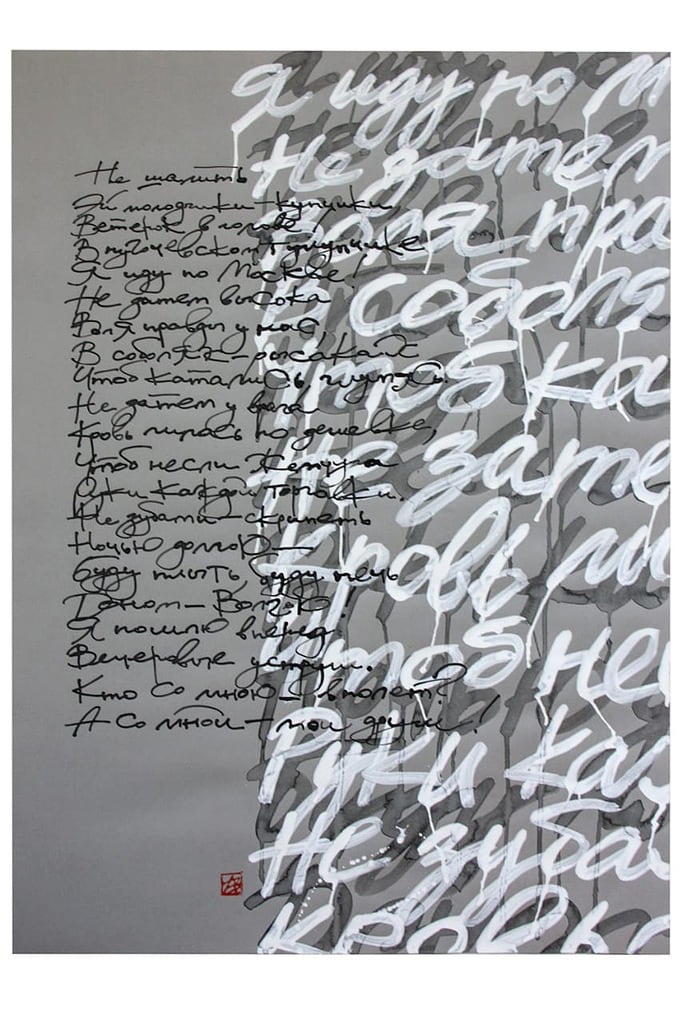 Не шалить
Эй молодчики-купчики,
Ветерок в голове!
В пугачевском тулупчике
Я иду по Москве!
Не затем высока
Воля правды у нас,
В соболях-рысаках
Чтоб катались, глумясь.
Не затем у врага
Кровь лилась по дешевке,
Чтоб несли жемчуга
Руки каждой торговки.
Не зубами — скрипеть
Ночью долгою —
Буду плыть, буду петь
Доном-Волгою!
Я пошлю вперед
Вечеровые уструги.
Кто со мною — в полет?
А со мной — мои други!
Я иду по М
Не затем
Воля пра
В соболя
Чтоб ка
Не зате
Кровь ли
Чтоб не
Руки ка
Не зуба
Кровь